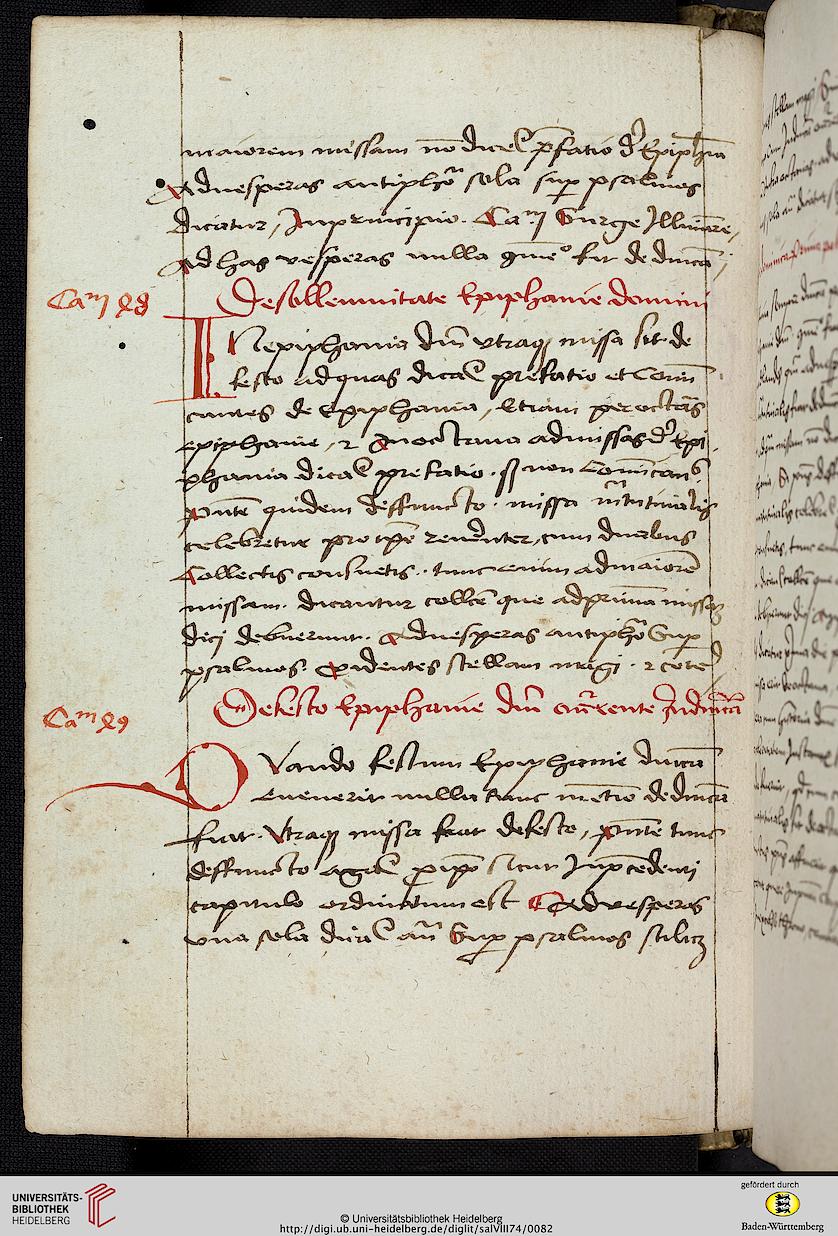 maiorem missam no dicet p̄fatio de Epiphīa
Aduesperas antiphō sola sup psalmos
dicatur, Inprincipio. Caᵐ Surge Illuiare,
Ad has vesperas nulla fit de dnica
Caᵐ 28 De sollemnitate Epiphanie domini
INepiphania dni vtraqʒ missa sit de
festo ad quas dicat prefatio et Comu
cantes de Epiphania, Etiam per octās
epiphanie, et In octaua admissas de Epi
phania dicat prefatio. sʒ non Comicans
quidem deffuncto. missa matutinalis
celebretur pro ipo reuerenter, cum duabus
Collectis consuetis. tunc enim admaiorē
missam. dicantur collecte que adprimā missaʒ
dici debuerunt. Aduesperas antiphō Sup
psalmos. Videntes stellam magi. et cete
Caᵐ 29 De festo Epiphanie dni occurrente In dnica
QVando festum Epiphanie dnica
euenerit nulla tunc metio de dnica
fiat. Vtraqʒ missa fiat de festo, tunc
deffuncto agat p ipo sicut In pcedenti
capitulo ordinatum est Aduesperas
vna sola dicat an Sup psalmos scilicʒ
UNIVERSITÄTS-
BIBLIOTHEK
HEIDELBERG
© Universitätsbibliothek Heidelberg
http://digi.ub.uni-heidelberg.de/diglit/salVIII74/0082
gefördert durch
Baden-Württemberg